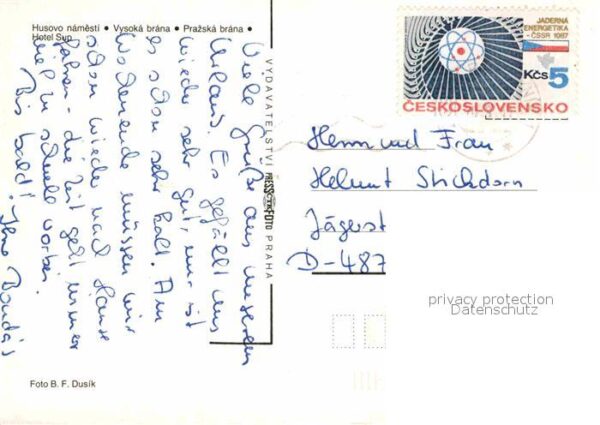 Husovo náměstí • Vysoká brána • Pražská brána •
Hotel Sun
Viele Grüße aus unserem
Urlaub. Es gefällt uns
wieder sehr gut, nur ist
es schon sehr kalt. Am
Wochenende müssen wir
schon wieder nach Hause
fahren - die Zeit geht immer
viel zu schnell vorbei.
Bis bald! Ihre
VYDAVATELSTVÍ PRESSFOTO PRAHA
JADERNÁ
ENERGETIKA
ČSSR 1987
Kčs 5
ČESKOSLOVENSKO
Herrn und Frau
Helmut Stickdorn
Jägerst
D-487
privacy protection
Datenschutz
Foto B. F. Dusík